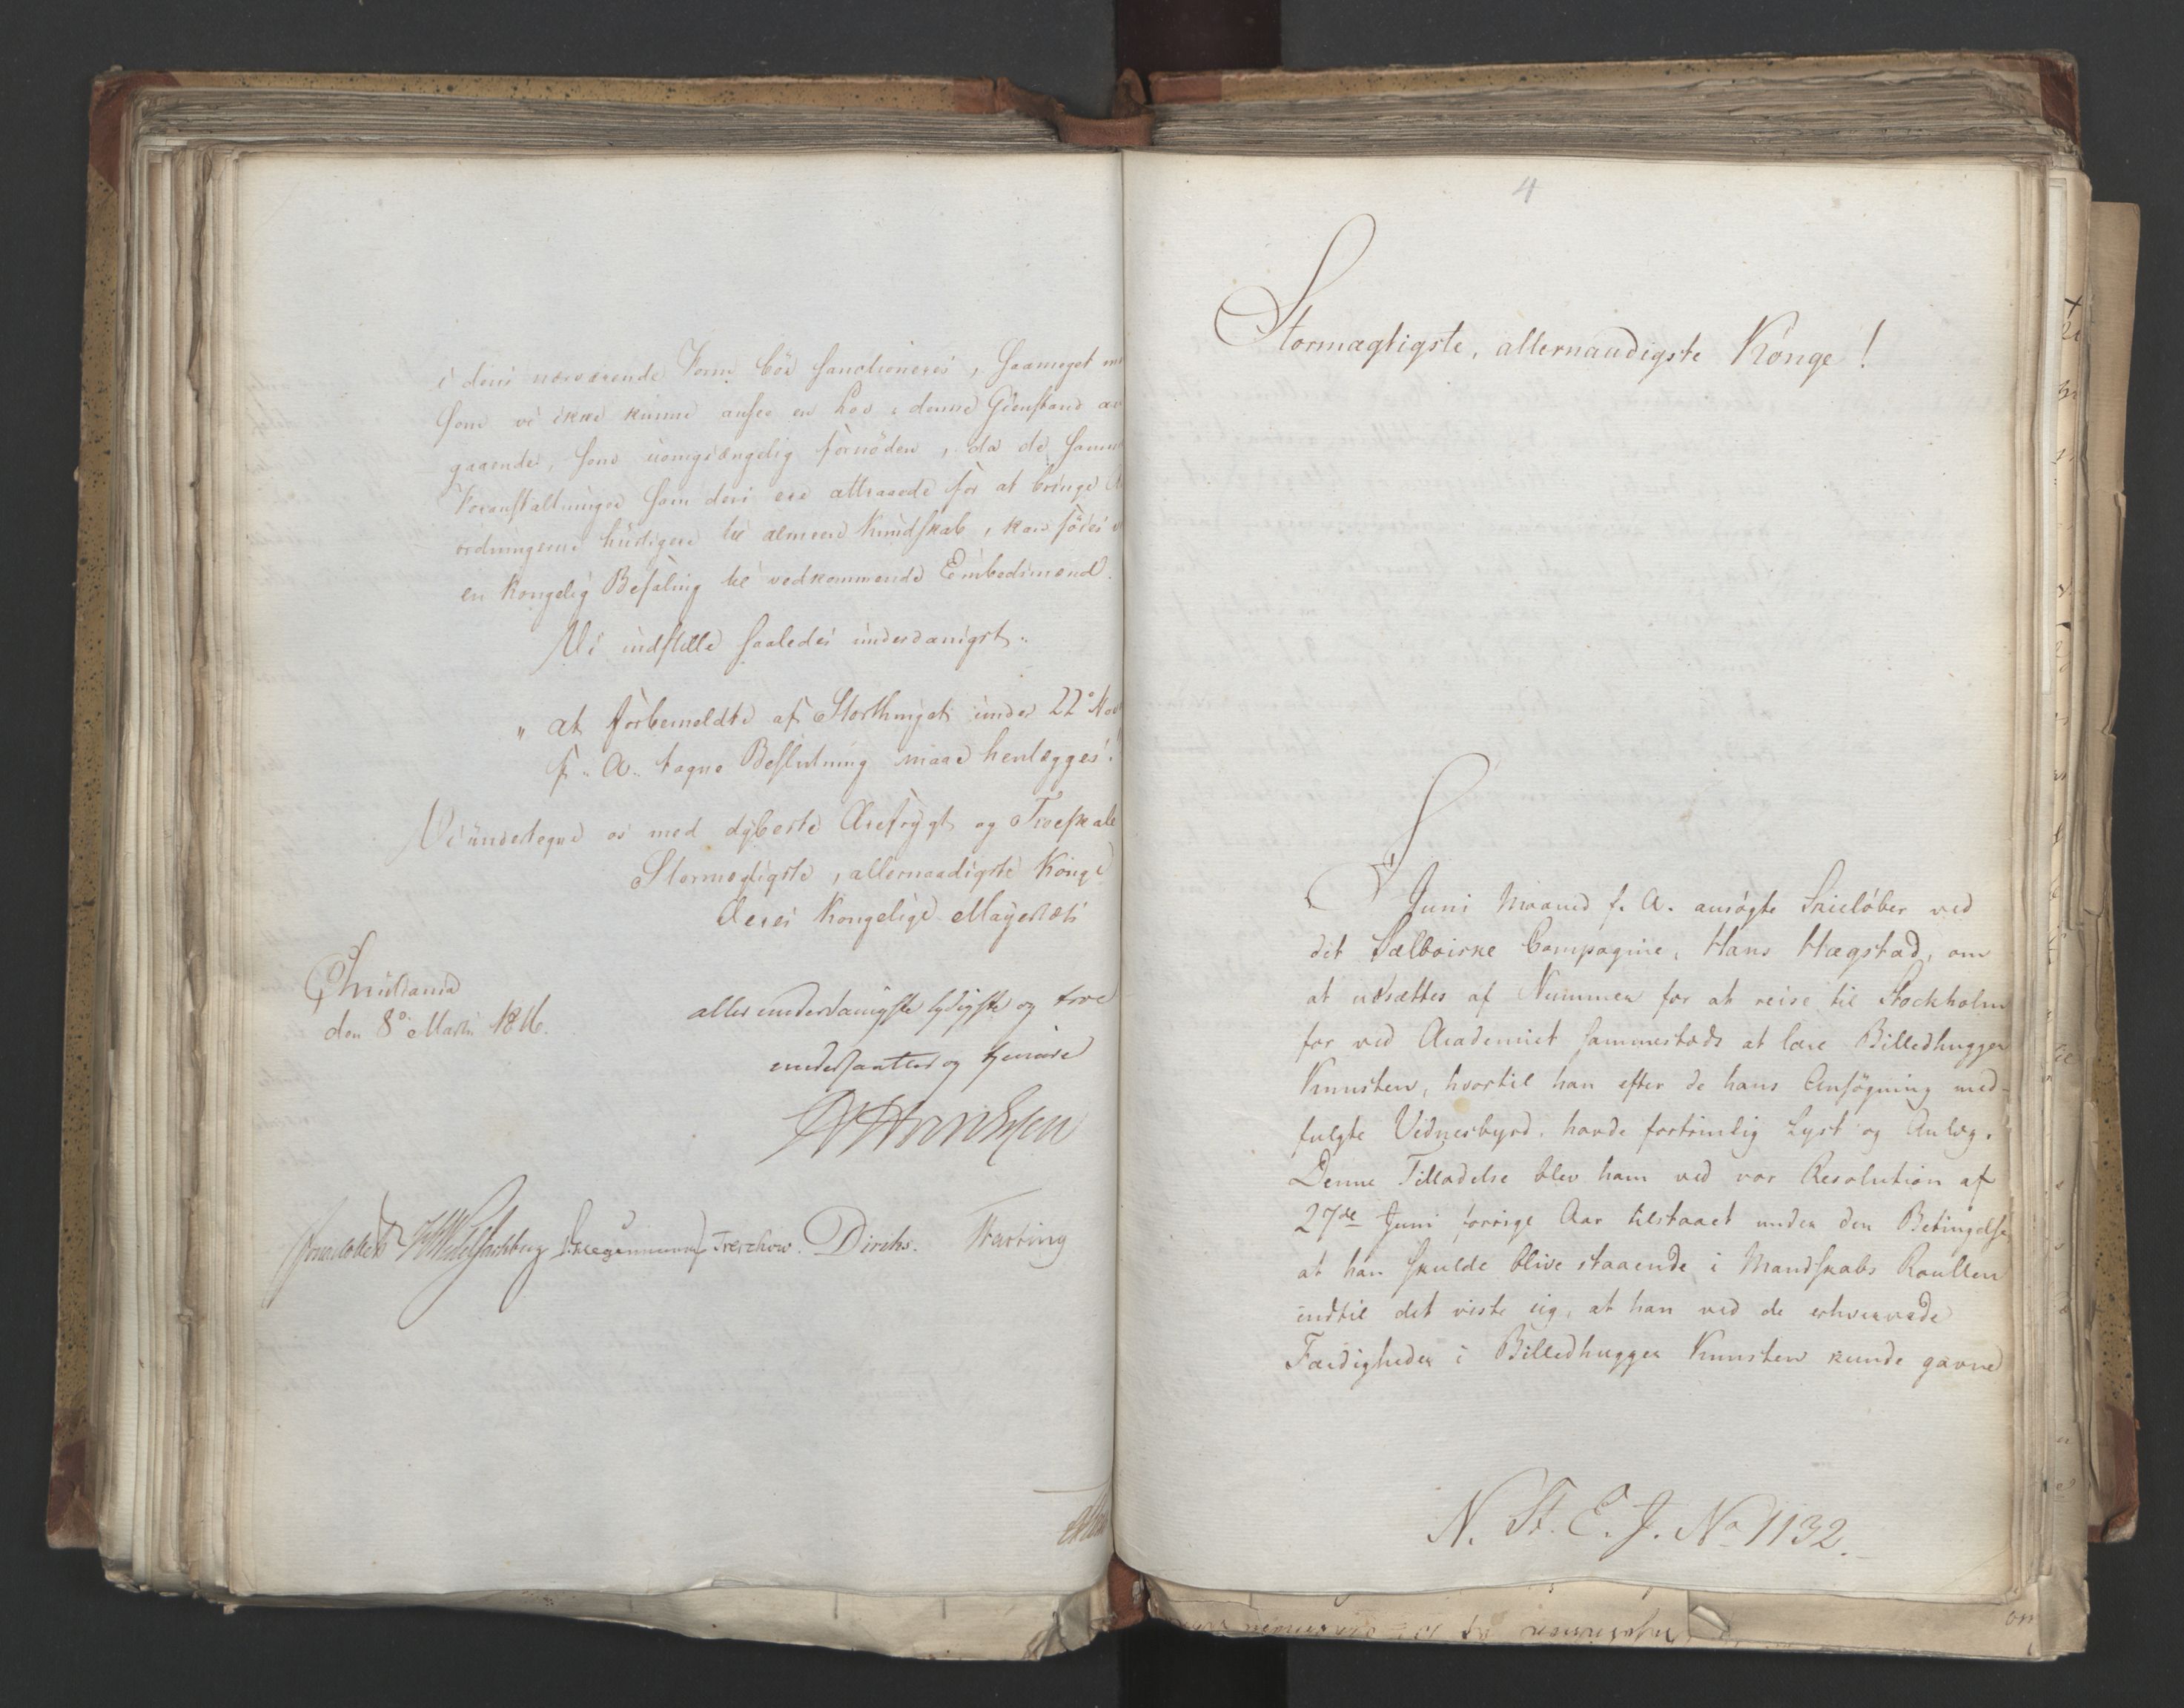 i dens nærværende Form bör sanctioneres, saameget me
som vi ikke kunne ansee en Lov i denne Gienstand an
gaaende, som uomgiængelig fornöden, da de samme
Foranstaltninger som deri ere attraaede for at bringe A
ordningerne hurtigere til almeen Kundskab, kan föies v
en Kongelig Befaling til vedkommende Embedsmænd.
Vi indstille saaledes underdanigst:
" at forbemeldte af Storthinget under 22° Nov
f. A. tagne Beslutning maae henlægges."
Vi undertegne os med dybeste Ærefrygt og Troeskab
Stormægtigste, allernaadigste Konge
Deres Kongelige Mayestæts
Christiania
den 8° Martii 1816.
allerunderdanigste lydigste og troe
undersaatter og tjenere
Sommerhielm Wedel Jarlsberg Krogh Treschow. Diriks. Hasting
4
Stormægtigste, allernaadigste Konge!
I Juni Maaned f. A. ansögte Skielöber ved
det Sælboiske Compagnie, Hans Hægstad, om
at udsættes af Nummer for at reise til Stockholm
for ved Academiet sammesteds at lære Billedhugger
Kunsten, hvortil han efter de hans Ansögning med-
fulgte Vidnesbyrd, havde fortrinlig Lyst og Anlæg.
Denne Tilladelse blev ham ved vor Resolution af
27de Juni forrige Aar tilstaaet under den Betingelse
at han skulde blive staaende i Mandskabs Roullen
indtil det viste sig, at han ved de erhvervede
Færdigheder i Billedhugger Kunsten kunde gavne
N. St. E. J. No 1132.